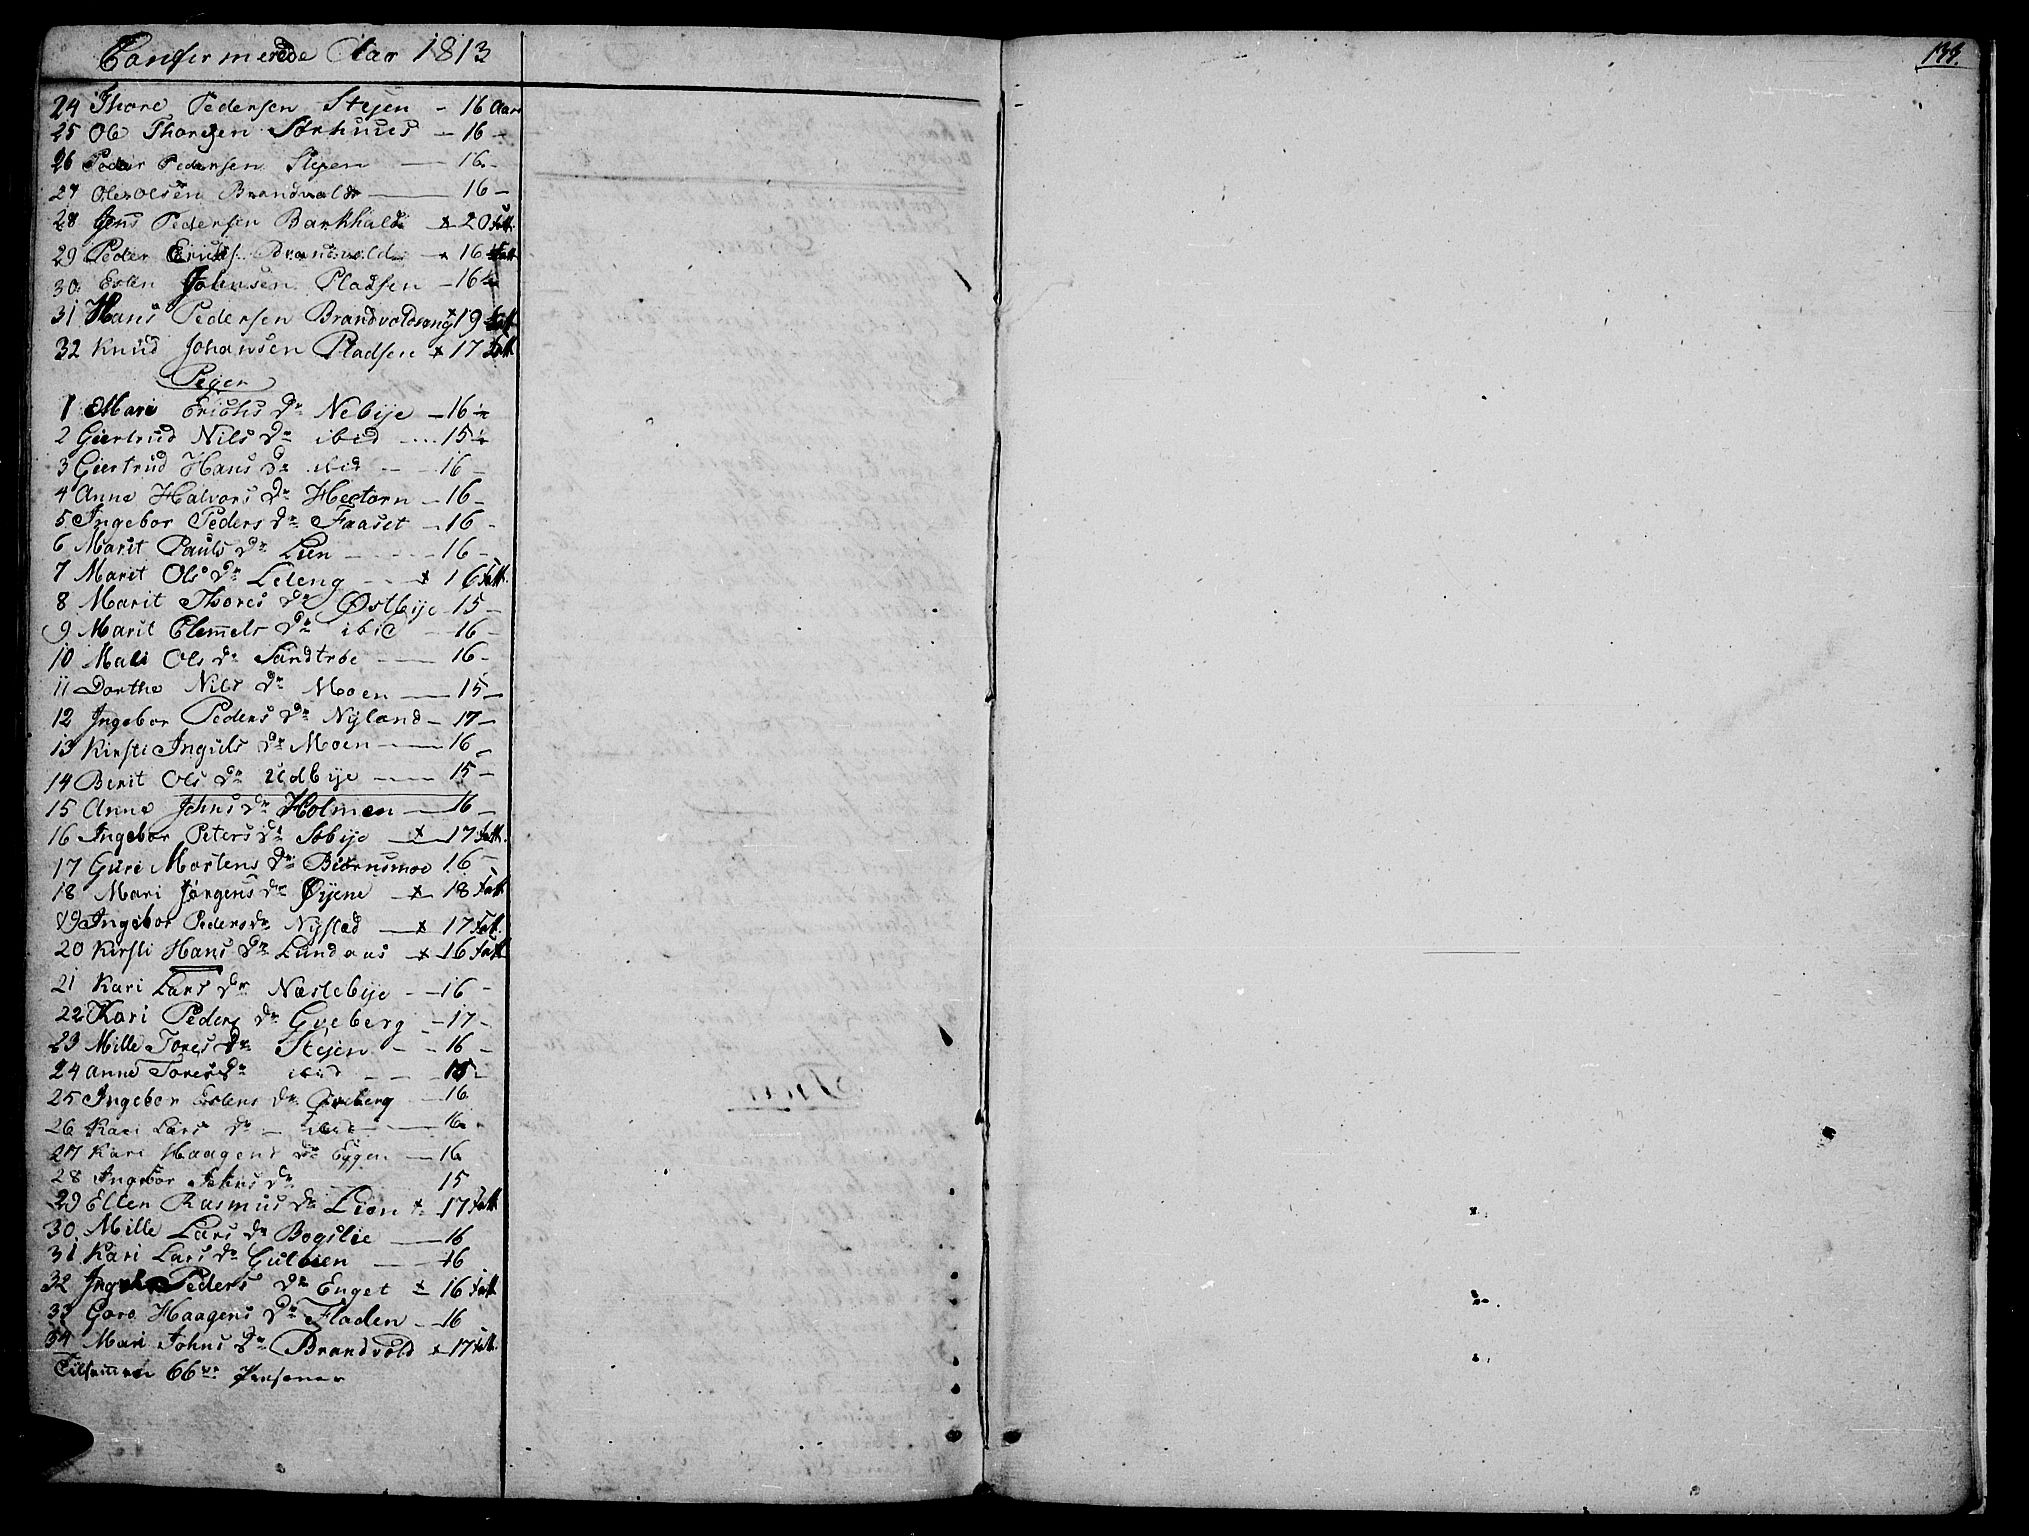 Confirmerede Aar 1813
24 Thore Pedersen Stejen - 16 Aar
25 Ole Thoresen Sörhuus - 16 -
26 Peder Pedersen Stejen - 16 -
27 Ole Olsen Brandvold - 16 -
28 Jens Pedersen Barkhald x 20 fatt.
29 Peder Erichs. Brandvold x 16 fatt
30 Esten Johnsen Pladsen - 16
31 Hans Pedersen Brandvoldseng x 19 fatt
32 Knud Johansen Pladsen x 17 fatt
Piger
1 Mari Erichs Dr Nebye - 16
2 Giertrud Nils Dr ibid .... 15
3 Giertrud Hans Dr ibid - - 16 -
4 Anne Halvors Dr Hektorn - 16 -
5 Ingebor Peders Dr Faaset - 16 -
6 Marit Pauls Dr Lien - - - 16 -
7 Marit Ols Dr Leteng - - x 16 Fatt.
8 Marit Thores Dr Østbye - 15 -
9 Marit Clemets Dr ibid - 16 -
10 Mali Ols Dr Sandtrøe - 16 -
11 Dorthe Nils Dr Moen - 15 -
12 Ingebor Peders Dr Nyland - 17 -
13 Kirsti Inguls Dr Moen - 16 -
14 Berit Ols Dr Udbye - 15 -
15 Anne Johns Dr Holmen - 16 -
16 Ingebor Peters Dr Søbye - x 17 Fatt.
17 Guri Mortens Dr Biørnsmoe 16 -
18 Mari Jörgens Dr Øyene - x 18 Fatt
19 Ingebor Peders Dr Nystad - x 17 Fatt.
20 Kirsti Hans Dr Lundaas x 16 fatt
21 Kari Lars Dr Næstebye - 16 -
22 Kari Peders Dr Gveberg - 17 -
23 Mille Tores Dr Stejen - - 16 -
24 Anne Tores Dr ibid - - 15 -
25 Ingebor Estens Dr Gveberg - 16
26 Kari Lars Dr - ibid - 16 -
27 Kari Haagens Dr Eggen - 16
28 Ingebor Johns Dr 15
29 Ellen Rasmus Dr Lien x 17 Fatt
30 Mille Lars Dr Bogslie - 16
31 Kari Lars Dr Gulvien - 16
32 Peders Dr Enget x 16 fatt
33 Goro Haagens Dr Fladen - 16
34 Mari Johns Dr Brandvold x 17 fatt.
Tilsammen 66 Personer
138.